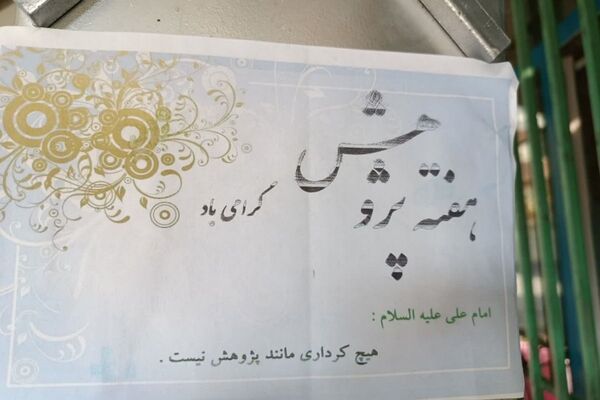 هفته پژوهش
گرامی باد
امام علی علیه السلام :
هیچ کرداری مانند پژوهش نیست .